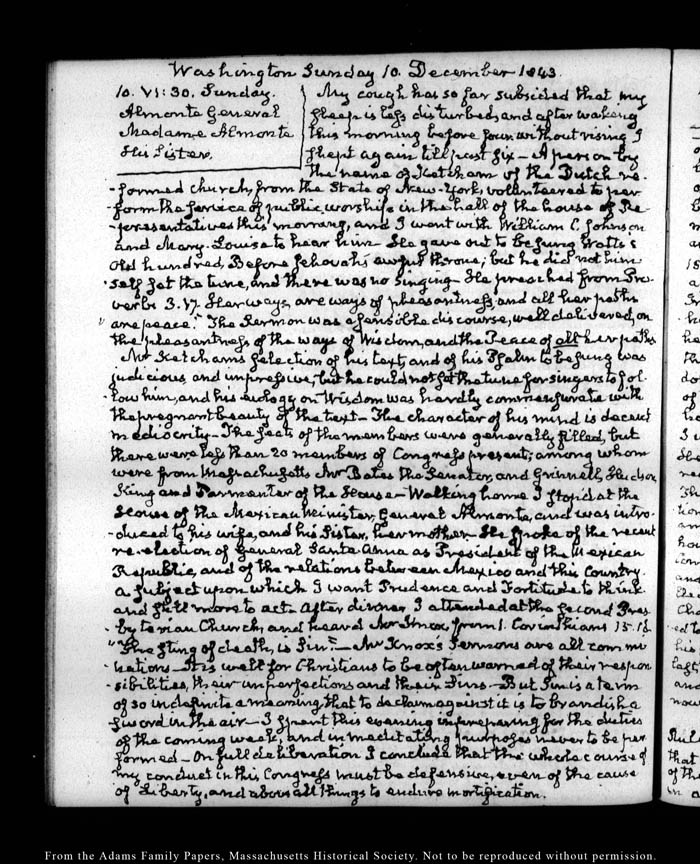 Washington Sunday 10. December 1843.
10. VI:30. Sunday.
Almonte General
Madame Almonte
His Sister.
My cough has so far subsided that my
sleep is less disturbed, and after waking
this morning before four, without rising I
slept again till past six – A person by
the name of Ketcham of the Dutch re-
-formed church, from the State of New-York, volunteered to per
-form the service of public worship in the hall of the house of Re-
-presentatives this morning, and I went with William C. Johnson
and Mary-Louisa to hear him. He gave out to be sung Watts's
Old hundred, Before Jehovah's awful throne; but he did not him
self set the tune, and there was no singing – He preached from Pro-
verbs 3.17. Her ways are ways of pleasantness, and all her paths
" are peace." The Sermon was a sensible discourse, well delivered, on
the pleasantness of the ways of Wisdom, and the Peace of all her paths
Mr Ketcham's selection of his text, and of his Psalm to be sung was
judicious and impressive, but he could not set the tune for singers to fol-
-low him, and his eulogy on Wisdom was hardly commensurate with
the pregnant beauty of the text – The character of his mind is decent
mediocrity – The seats of the members were generally filled, but
there were less than 20 members of Congress present; among whom
were from Massachusetts Mr Bates the Senator, and Grinnell, Hudson,
King and Parmenter of the House – Walking home I stop'd at the
House of the Mexican Minister, General Almonte, and was intro-
-duced to his wife, and his Sister, her mother. He spoke of the recent
re-election of General Santa-Anna as President of the Mexican
Republic, and of the relations between Mexico and this Country.
a subject upon which I want Prudence and Fortitude to think
and still more to act. After dinner I attended at the second Pres
-byterian Church, and heard Mr Knox, from 1. Corinthians 15.56.
"The sting of death, is Sin." – Mr Knox's Sermons are all commi
-nations – It is well for Christians to be often warned of their respon
-sibilities, their imperfections and their Sins – But Sin is a term
of so indefinite a meaning that to declaim against it is to brandish a
sword in the air – I spent this evening in preparing for the duties
of the coming week, and in meditating purposes never to be per
formed – On full deliberation I conclude that the whole course of
my conduct in this Congress must be defensive, even of the cause
of Liberty, and above all things to endure mortification.
From the Adams Family Papers, Massachusetts Historical Society. Not to be reproduced without permission.